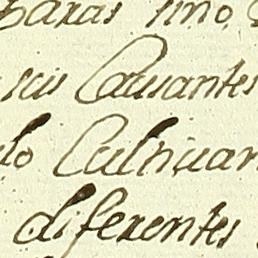 baxas sino
sus Causantes
lo Cultiuar
diferentes